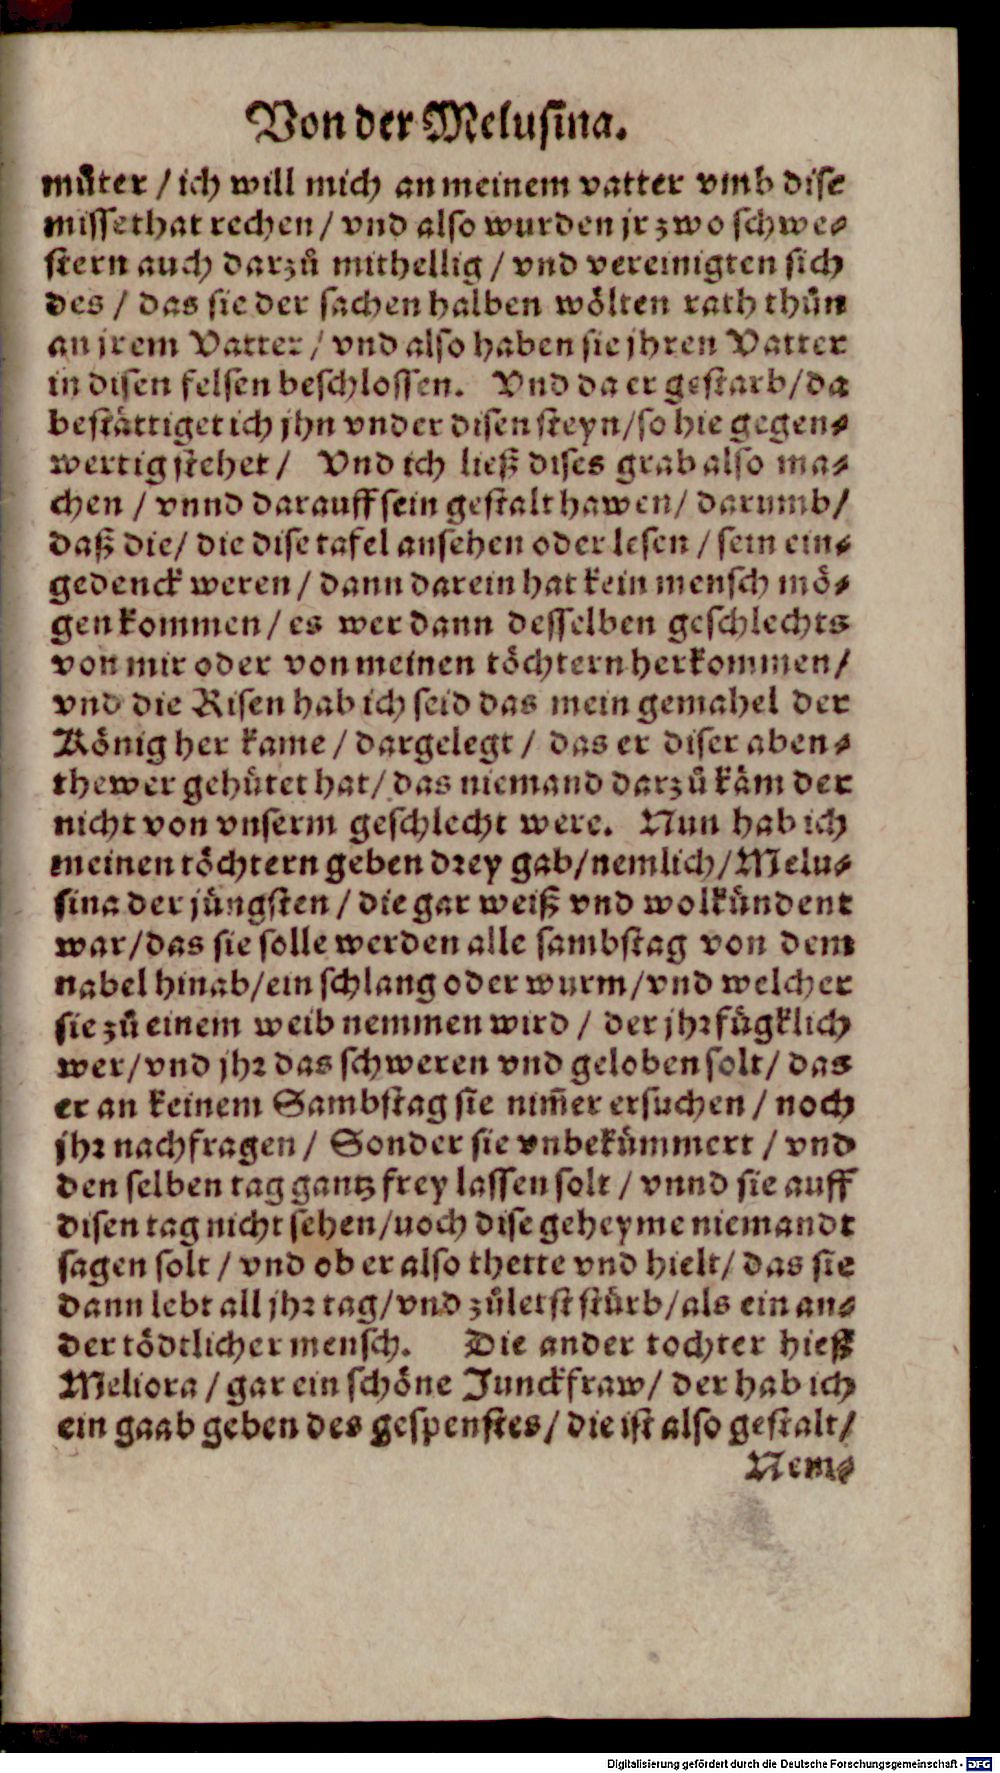 Von der Melusina.
můter / ich will mich an meinem vatter vmb dise
missethat rechen / vnd also wurden jr zwo schwe⸗
stern auch darzů mithellig / vnd vereinigten sich
des / das sie der sachen halben wölten rath thůn
an jrem Vatter / vnd also haben sie jhren Vatter
in disen felsen beschlossen. Vnd da er gestarb / da
bestättiget ich jhn vnder disen steyn / so hie gegen⸗
wertig stehet / Vnd ich ließ dises grab also ma⸗
chen / vnnd darauff sein gestalt hawen / darumb /
daß die / die dise tafel ansehen oder lesen / sein ein⸗
gedenck weren / dann darein hat kein mensch mö⸗
gen kommen / es wer dann desselben geschlechts
von mir oder von meinen töchtern herkommen /
vnd die Risen hab ich seid das mein gemahel der
König her kame / dargelegt / das er diser aben⸗
thewer gehütet hat / das niemand darzů käm der
nicht von vnserm geschlecht were. Nun hab ich
meinen töchtern geben drey gab / nemlich / Melu⸗
sina der jüngsten / die gar weiß vnd wolkündent
war / das sie solle werden alle sambstag von dem
nabel hinab / ein schlang oder wurm / vnd welcher
sie zů einem weib nemmen wird / der jhr fügklich
wer / vnd jhr das schweren vnd geloben solt / das
er an keinem Sambstag sie nim̄er ersuchen / noch
jhr nachfragen / Sonder sie vnbekümmert / vnd
den selben tag gantz frey lassen solt / vnnd sie auff
disen tag nicht sehen / uoch dise geheyme niemandt
sagen solt / vnd ob er also thette vnd hielt / das sie
dann lebt all jhr tag / vnd zůletst stürb / als ein an⸗
der tödtlicher mensch. Die ander tochter hieß
Meliora / gar ein schöne Junckfraw / der hab ich
ein gaab geben des gespenstes / die ist also gestalt /
Nem⸗
Digitalisierung gefördert durch die Deutsche Forschungsgemeinschaft - DFG